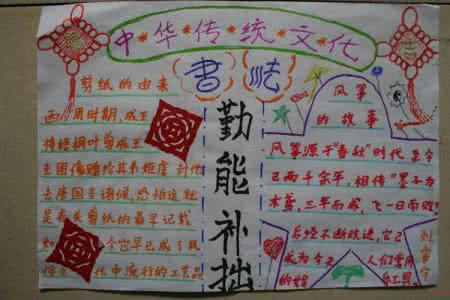 中华传统文化
书法
剪纸的由来
西周时期,成王
将梧桐叶剪成玉
圭图像赠给其弟姬虞,封他
去唐国当诸侯,恐怕这就
是有关剪纸的最早记载
如 今它早已成了民
化中流行的工艺品
勤能补拙
风筝
的故事
风筝源于"春秋"时代,至今
已两千余年,相传"墨子为
木鸢,三年而成,飞一日而败"
后经不断改进,它已
成为今天 人们常用
的娱 工具